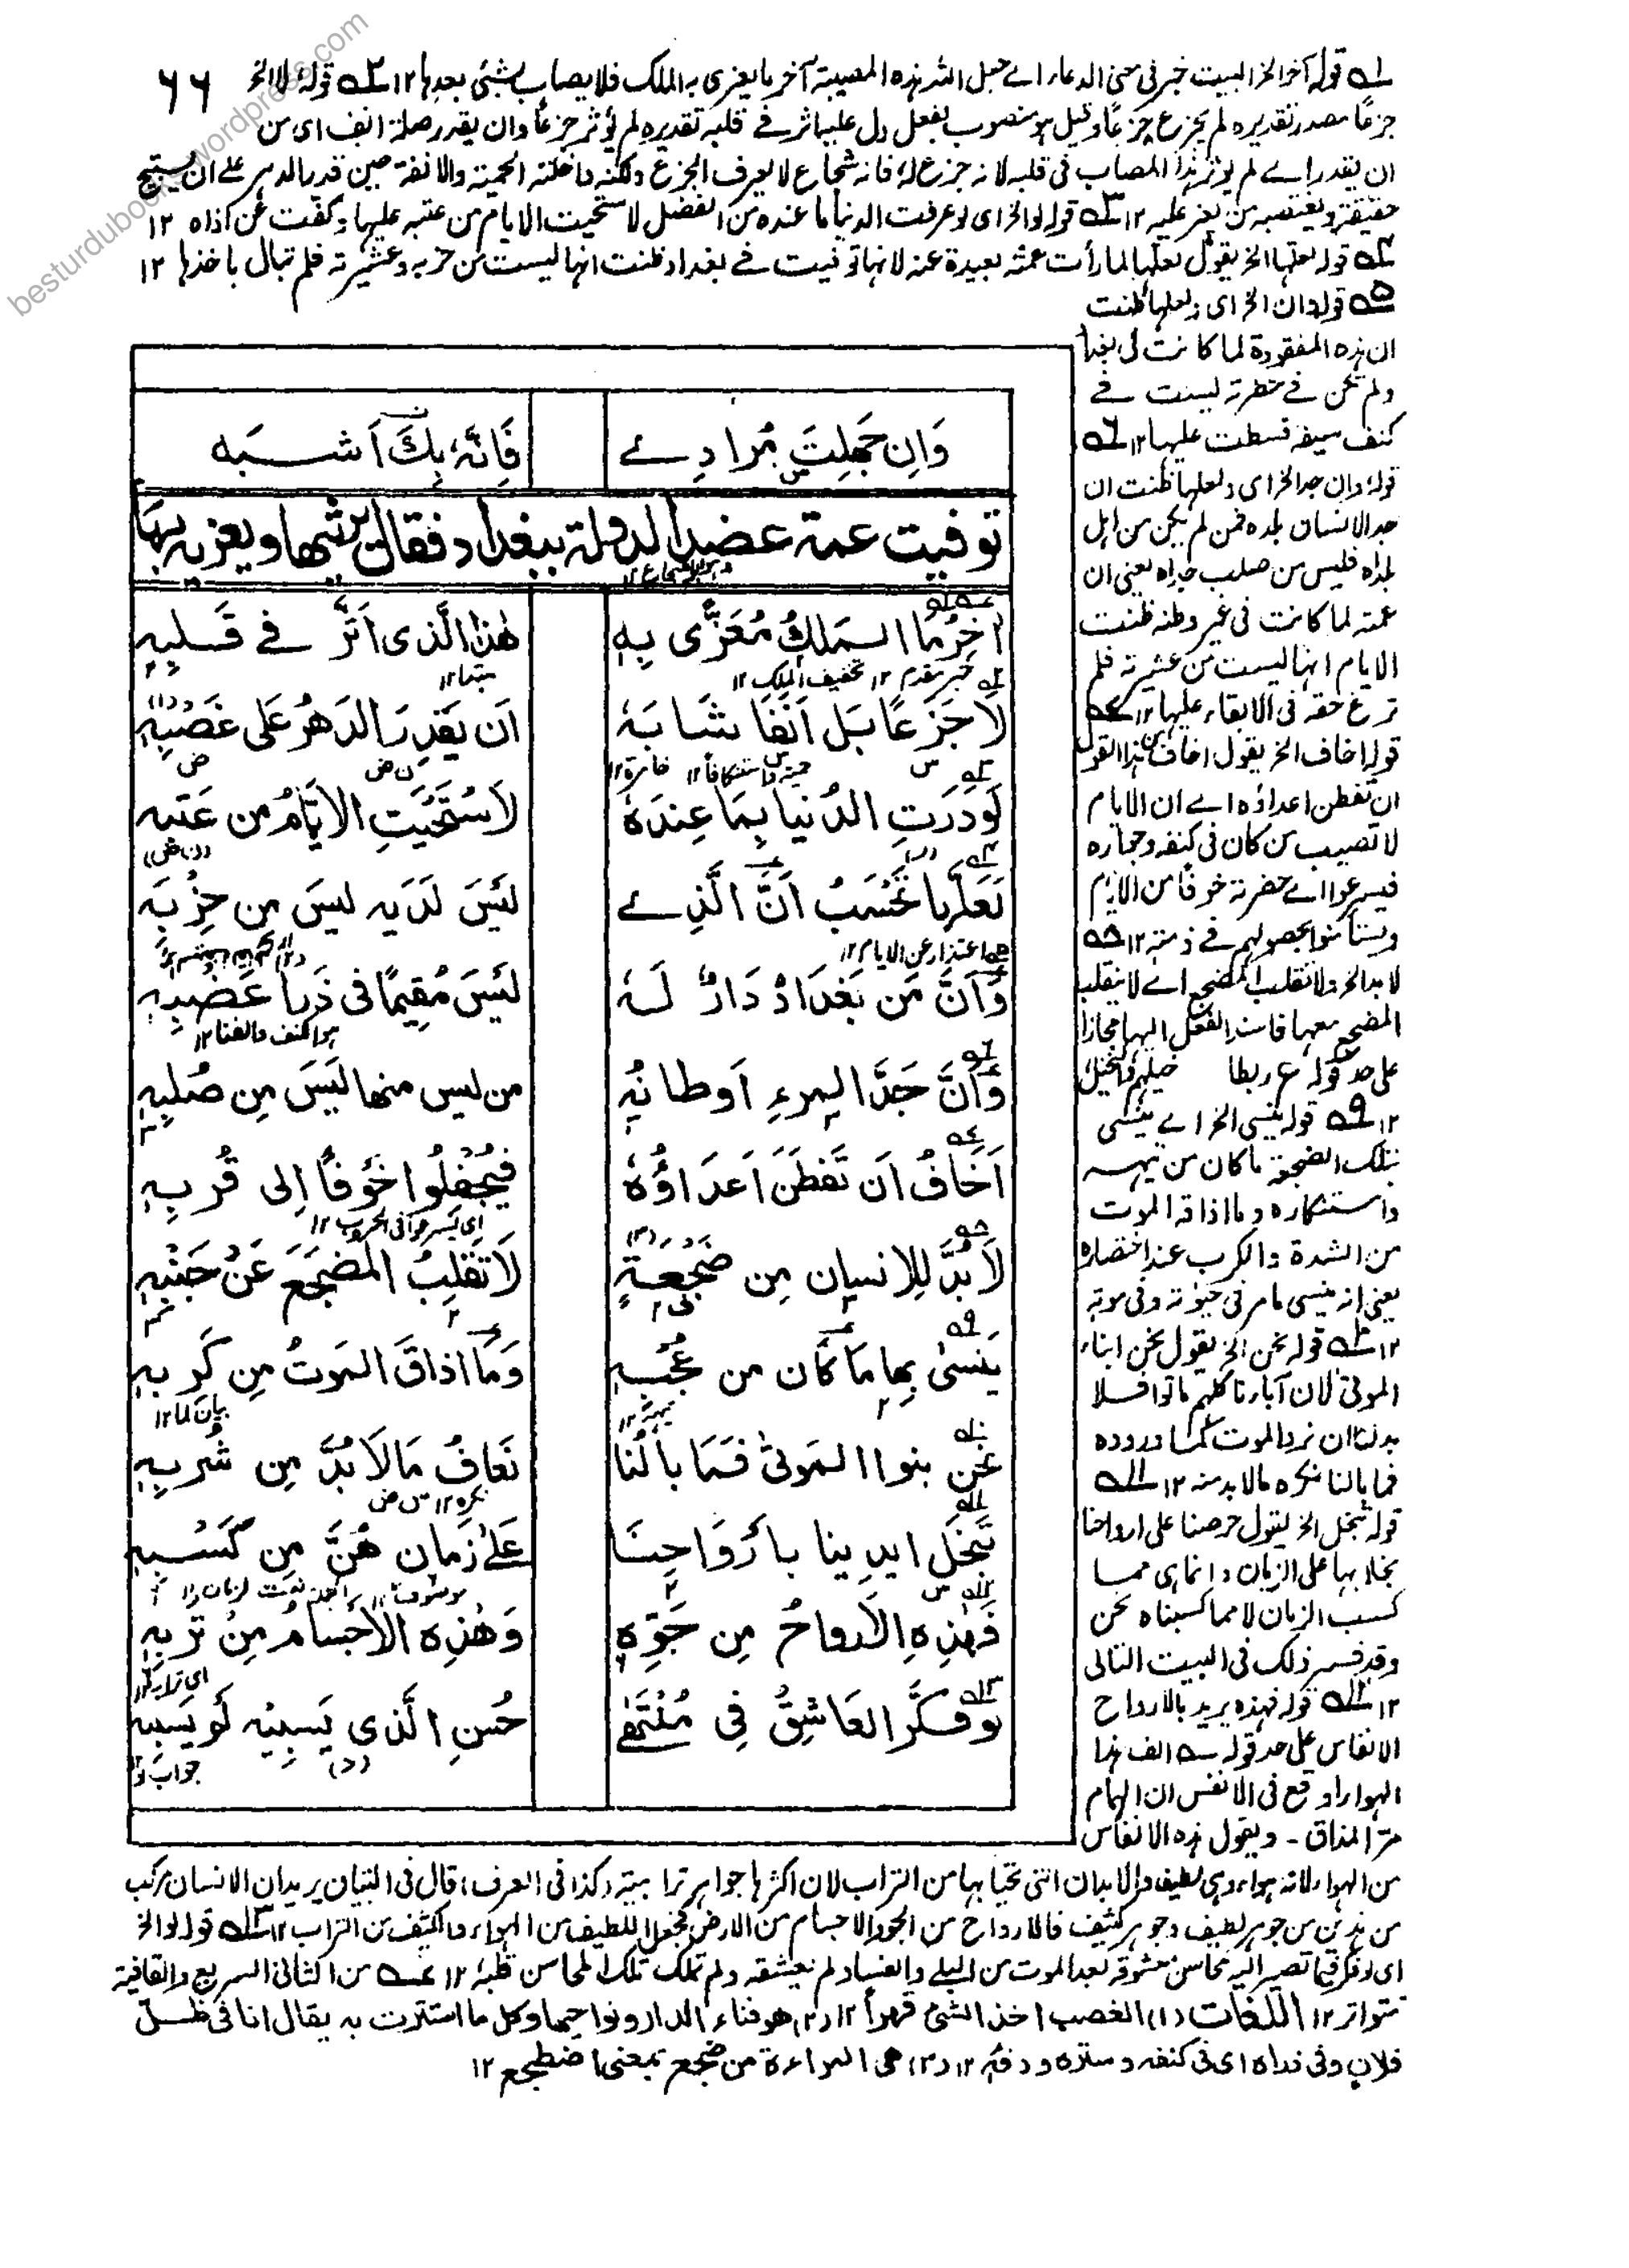 besturdubooks.wordpress.com
٦٦
١ قوله آخر الخ البيت خبر فى معنى الدعاء اے جعل الله هذه المصيبة آخر ما يعزى به الملك فلا يصاب بشئ بعدها ١٢ ٢ قوله لا الخ
جزعًا مصدر تقديره لم يجزع جزعًا وقيل هو منصوب بفعل دل عليه اثر فے قلبه تقديره لم يؤثر جزعًا وان يقدر صلة انف اى من
ان يقدر اے لم يؤثر هذا المصاب فى قلبه لانه جزع له فانه شجاع لا يعرف الجزع ولكنه داخلته الحمية والانفة حين قدر الدهر علے ان يستبيح
حقيقته ويغتصبه من يعز عليه ١٢ ٣ قوله لو الخ اى لو عرفت الدنيا ما عنده من الفضل لاستحيت الايام من عتبه عليها وكفت عن اذاه ١٢
٤ قوله لعلها الخ يقول لعلها لما رأت عمته بعيدة عنه لانها توفيت فے بغداد ظنت انها ليست من حزبه وعشيرته فلم تبال باخذها ١٢
٥ قوله وان الخ اى ولعلها ظنت
ان هذه المفقودة لما كانت فى بغداد
ولم تكن فے حضرته ليست فے
كنف سيفه فسطت عليها ١٢ ٦
قوله وان جد الخ اى ولعلها ظنت ان
جد الانسان بلده فمن لم يكن من اهل
بلداه فليس من صلب جداه يعنى ان
عمته لما كانت فى غير وطنه ظننت
الايام انها ليست من عشيرته فلم
ترع حقه فى الابقاء عليها ١٢ ٧
قوله اخاف الخ يقول اخاف من هذا القول
ان تفطن اعداؤه اے ان الايام
لا تصيب من كان فى كنفه وجواره
فيسرعوا اے حضرته خوفًا من الايام
ويستأمنوا بحصولهم فے ذمته ١٢ ٨
لا بد الخ ولا تقلب المضجع اے لا ينقلب
المضجع معها فاسند الفعل اليها مجازا
على حد قوله ع ربطا خيلهم والخيل
١٢ ٩ قوله ينسى الخ اے ينسى
بتلك الضجعة ما كان من تيهه
واستنكاره وما اذاقه الموت
من الشدة والكرب عند احتضاره
يعنى انه ينسى ما مر فى حيوته وفى موته
١٢ ١٠ قوله نحن الخ يقول نحن ابناء
الموتى لان آباءنا كلهم ماتوا فلا
بد لنا ان نرد الموت كما وردوه
فما بالنا نكره ما لا بد منه ١٢ ١١
قوله تبخل الخ يقول حرصنا على ارواحنا
بخلا بها على الزمان وانما هى مما
كسب الزمان لا مما كسبناه نحن
وقد فسر ذلك فى البيت التالى
١٢ ١٢ قوله فهذه يريد بالارواح
الانفاس على حد قوله ؎ الف هذا
الهواء اوقع فى الانفس ان الحمام
مر المذاق - ويقول هذه الانفاس
وَاِن جَهِلتَ مُرادِے فَاِنَّهٗ بِكَ اَشبَه
توفيت عمة عضد الدولة ببغداد فقال يرثيها ويعزيه بها
هو ابو شجاع ١٢
آخِرُ مَا المَلكُ مُعَزًّى بِهٖ هٰذا الَّذى اَثَّرَ فے قَلبِهٖ
خبر مقدم ١٢ تخفيف الملك ١٢ مبتدا ١٢
لَا جَزَعًا بَل اَنَفًا شَابَهٗ اَن يَقدِرَ الدَهرُ عَلى غَصبِهٖ
حمية واستنكافًا ١٢ خامره ١٢
لَو دَرَتِ الدُنيا بِمَا عِندَهٗ لَاستَحيَتِ الاَيّامُ مِن عَتبِه
لَعَلَّها تَحسَبُ اَنَّ الَّذِے لَيسَ لَدَيهِ ليسَ مِن حِزبِهٖ
اعتذار عن الايام ١٢
وَاَنَّ مَن بَغدَادُ دَارٌ لَهٗ لَيسَ مُقيمًا فى ذَرا عَضبِهٖ
هو الكنف والفناء ١٢
وَاَنَّ جَدَّ المرءِ اَوطانُهٗ من ليس منها لَيسَ مِن صُلبِهٖ
اَخَافُ اَن تَفطَنَ اَعدَاؤُهٗ فيُجفِلُوا خَوفًا اِلى قُربِهٖ
اى يسرعوا فى الهروب ١٢
لَا بُدَّ لِلانسانِ مِن ضَجعَةٍ لَا تَقلِبُ المَضجَعَ عَن جَنبِهٖ
يَنسىٰ بِها مَا كَان من عُجبِهٖ وَمَا اذاقَ المَوتُ مِن كَربِهٖ
تيهه ١٢ بيان لما ١٢
نحن بنوا المَوتىٰ فَمَا بالُنا نَعافُ مَا لَا بُدَّ مِن شُربِهٖ
نكره ١٢
تَبخَلُ ايدينا بِاَروَاحِنَا عَلےٰ زَمانٍ هُنَّ مِن كَسبِهٖ
فَهٰذِهِ الاَرواحُ مِن جَوِّهٖ وَهٰذِه الاَجسَامُ مِن تُربِهٖ
اى ترابه ١٢
لو فكَّرَ العَاشِقُ فِى مُنتَهٰے حُسنِ الَّذى يَسبِيهِ لَم يَسبِهٖ
جواب لو
من الهواء لانه هواء وهى لطيفة والابدان التى تحيا بها من التراب لان اكثرها جواهر ترابية وكذا فى العرف، قال فى التبيان يريد ان الانسان مركب
من هذين من جوهر لطيف وجوهر كثيف فالارواح من الجو والاجسام من الارض فجعل اللطيف من الهواء والكثيف من التراب ١٢ ١٣ قوله لو الخ
اى لو فكر فيما تصير اليه محاسن معشوقه بعد الموت من البلے والفساد لم يعشقه ولم تملك تلك المحاسن قلبه ١٢ عـه من الثانى السريع والقافية
متواتر ١٢ اللغات (١) الغصب اخذ الشئ قهراً ١٢ (٢) هو فناء الدار ونواحيها وكل ما استترت به يقال انا فى ظل
فلان وفى ذراه اى فى كنفه وستره ودفئه ١٢ (٣) هى المراءة من ضجع بمعنى اضطجع ١٢